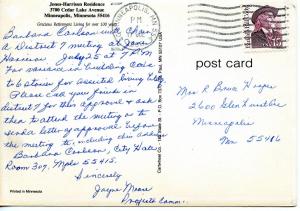 Jones-Harrison Residence
3700 Cedar Lake Avenue
Minneapolis, Minnesota 55416
Gracious Retirement Living for over 100 years
Barbara Carlson will chair
A District 7 meeting at Jones
Harrison July 25 at 7 PM
For variance in building code
to 6 stories for assisted living bldg.
Please call your friends in
district 7 for their approval & ask
them to attend the meeting or to
send a letter of approval before
the meeting to, including this address
Barbara Carlson, City Hall
Room 307, Mpls 55415.
Sincerely
Jayne
Projects Comm.
Printed in Minnesota
MINNEAPOLIS, MN
PM
post card
Mrs R Bruce
2600
Minneapolis
Mn 55416